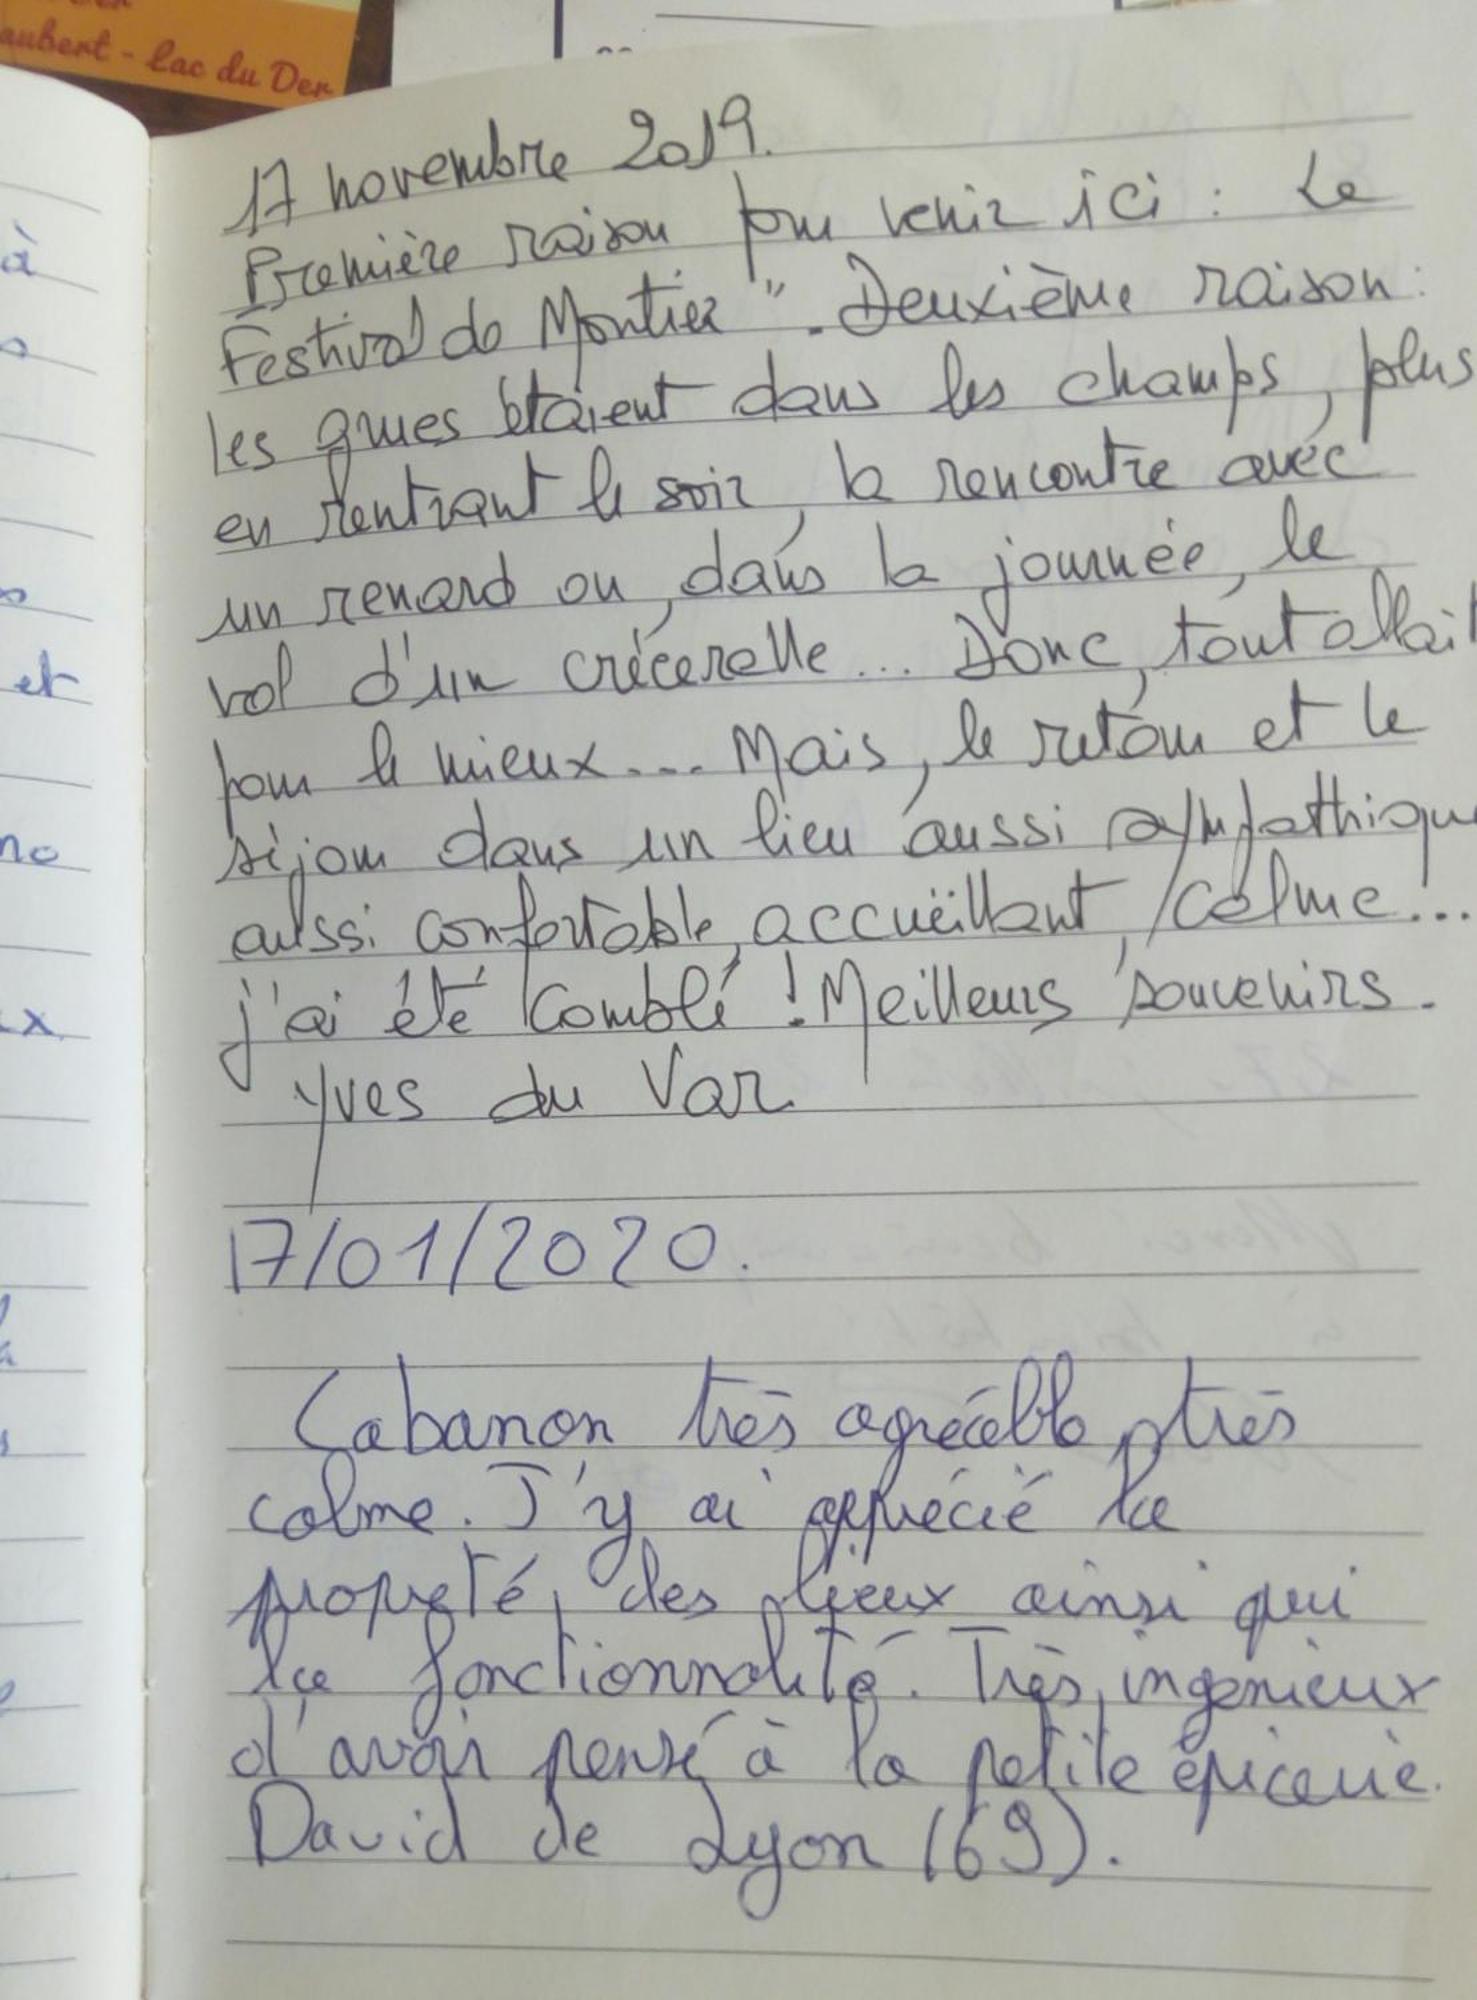 aubert - Lac du Der
17 novembre 2019.
Première raison pour venir ici : Le
Festival de Montier". Deuxième raison :
les grues étaient dans les champs, plus
en rentrant le soir, la rencontre avec
un renard ou, dans la journée, le
vol d'un crécerelle... Donc, tout allait
pour le mieux.... Mais, le retour et le
séjour dans un lieu aussi sympathique
aussi confortable, accueillant, calme...
j'ai été comblé ! Meilleurs souvenirs.
Yves du Var
17/01/2020.
Cabanon très agréable, très
calme. J'y ai apprécié la
propreté, des lieux ainsi qui
la fonctionnalité. Très, ingenieux
d'avoir pensé à la petite épicerie.
David de Lyon (69).
à
et
no
x